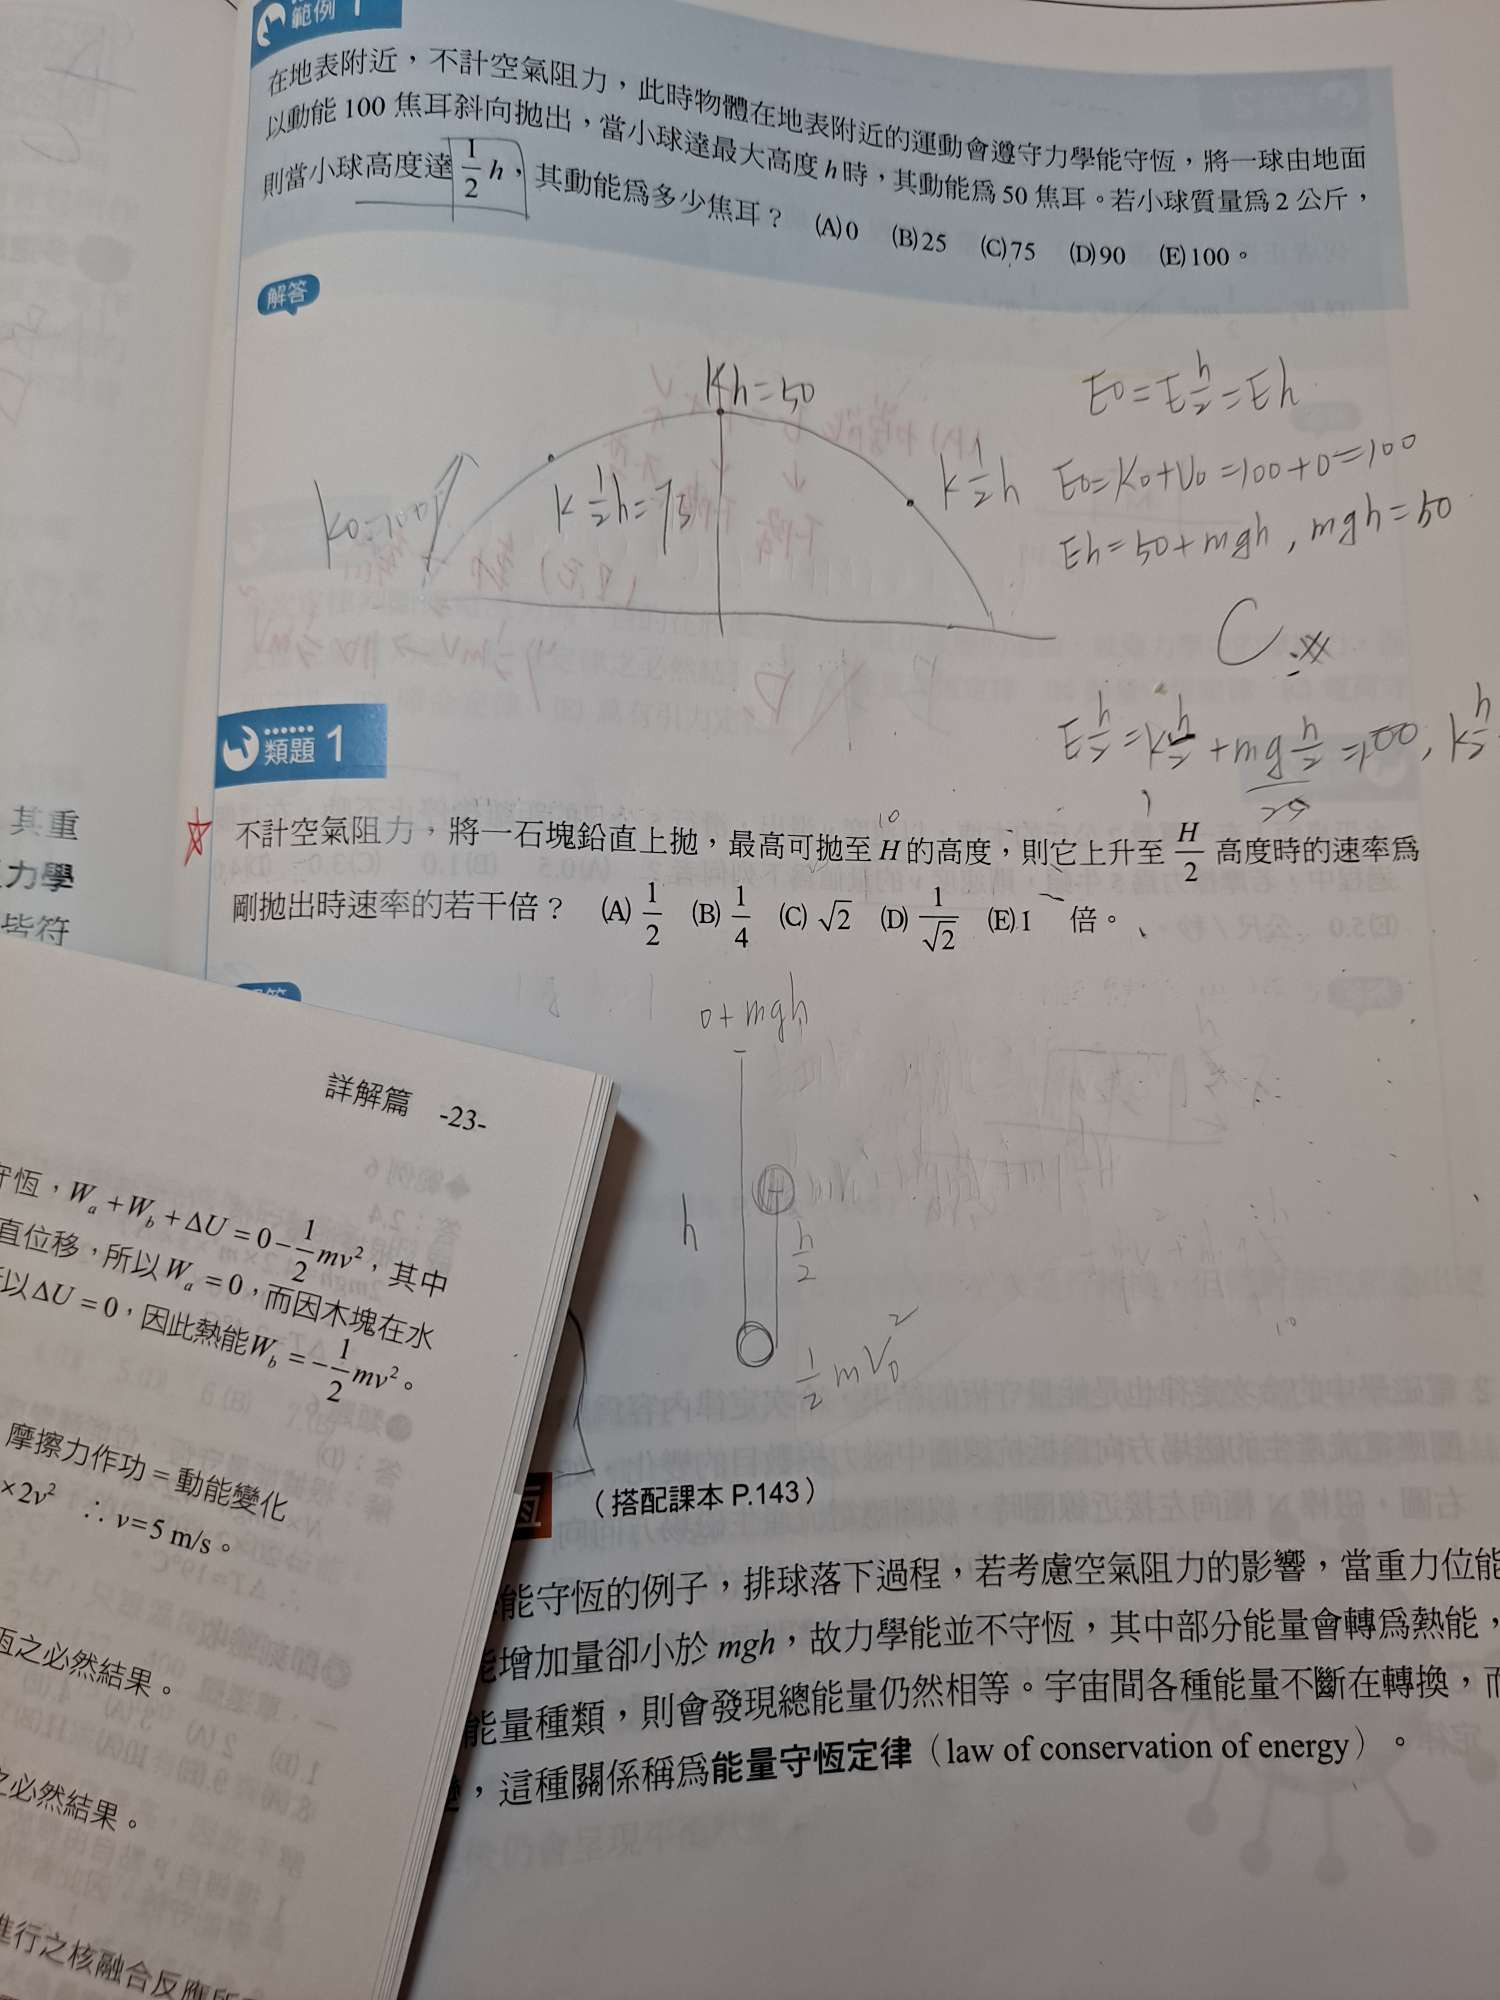 範例 1
在地表附近，不計空氣阻力，此時物體在地表附近的運動會遵守力學能守恆，將一球由地面
以動能 100 焦耳斜向拋出，當小球達最大高度 h 時，其動能為 50 焦耳。若小球質量為 2 公斤，
則當小球高度達 1/2 h，其動能為多少焦耳？ (A) 0 (B) 25 (C) 75 (D) 90 (E) 100。
解答
Kh=50
K 1/2 h=75
K 1/2 h
E0=E h/2=Eh
E0=K0+U0=100+0=100
Eh=50+mgh, mgh=50
C
E h/2=K h/2+mg h/2=100, K h/2
25
類題 1
10
不計空氣阻力，將一石塊鉛直上拋，最高可拋至 H 的高度，則它上升至 H/2 高度時的速率為
剛拋出時速率的若干倍？ (A) 1/2 (B) 1/4 (C) √2 (D) 1/√2 (E) 1 倍。
0+mgh
h
h/2
1/2 mV0²
詳解篇 -23-
守恆，Wa+Wb+ΔU=0−1/2 mv²，其中
直位移，所以 Wa=0，而因木塊在水
以 ΔU=0，因此熱能 Wb=−1/2 mv²。
摩擦力作功=動能變化
×2v² ∴v=5 m/s。
恆之必然結果。
之必然結果。
進行之核融合反應所
其重
力學
皆符
恆 （搭配課本 P.143）
能守恆的例子，排球落下過程，若考慮空氣阻力的影響，當重力位能
能增加量卻小於 mgh，故力學能並不守恆，其中部分能量會轉為熱能，
能量種類，則會發現總能量仍然相等。宇宙間各種能量不斷在轉換，而
變，這種關係稱為能量守恆定律（law of conservation of energy）。